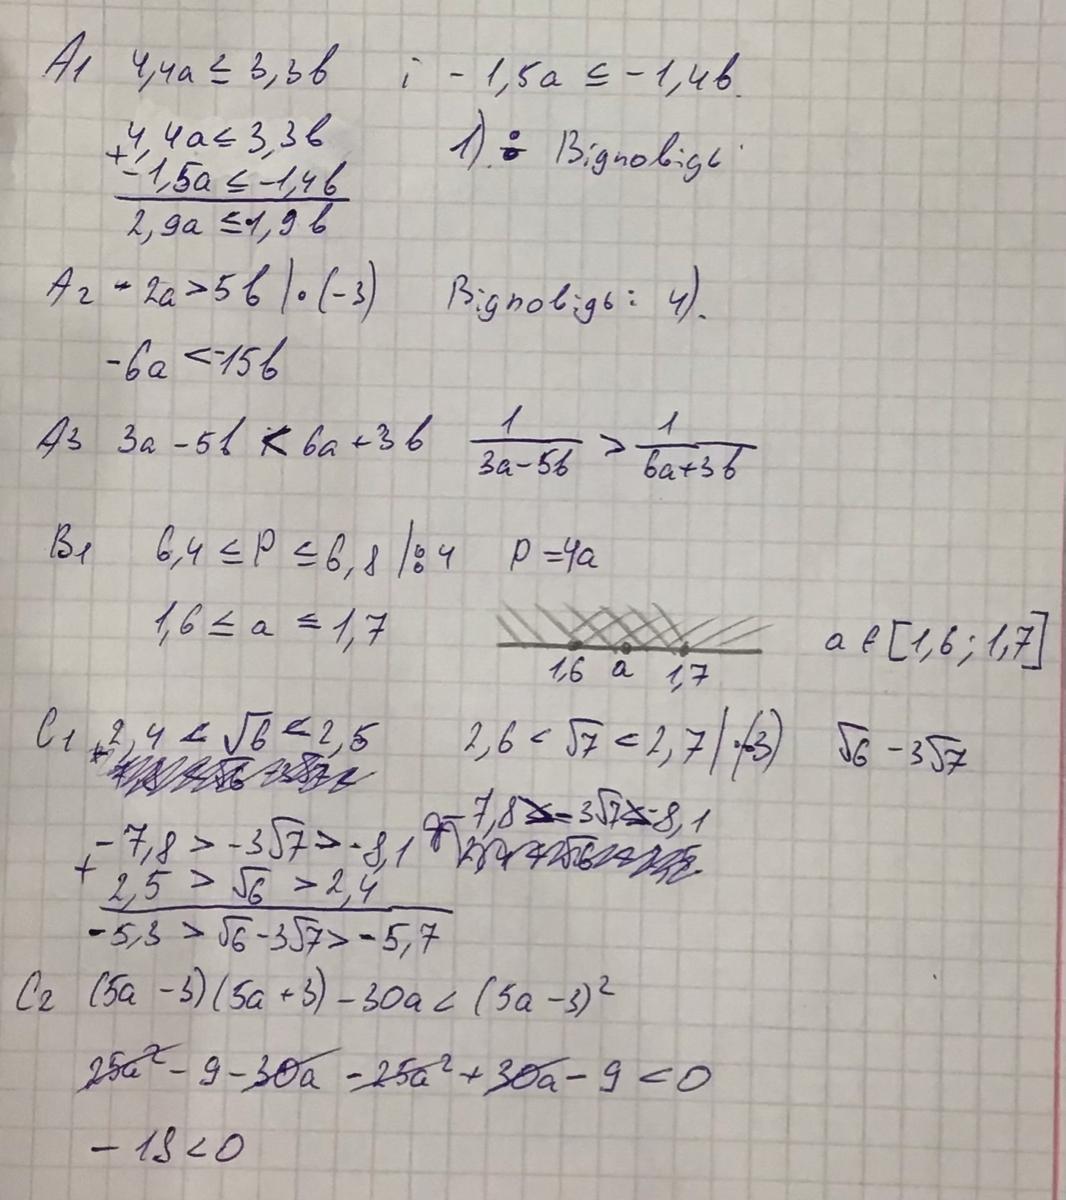 A1 4,4a ≤ 3,3b і -1,5a ≤ -1,4b.
4,4a ≤ 3,3b 1) Відповідь
+ -1,5a ≤ -1,4b
2,9a ≤ 1,9b
A2 - 2a > 5b | · (-3) Відповідь: 4).
-6a < -15b
A3 3a - 5b < 6a + 3b 1/(3a-5b) > 1/(6a+3b)
B1 6,4 ≤ P ≤ 6,8 | : 4 P = 4a
1,6 ≤ a ≤ 1,7 a ∈ [1,6 ; 1,7]
1,6 a 1,7
C1 2,4 < √6 < 2,5 2,6 < √7 < 2,7 | · (-3) √6 - 3√7
-7,8 > -3√7 > -8,1
-7,8 > -3√7 > -8,1
+ 2,5 > √6 > 2,4
-5,3 > √6 - 3√7 > -5,7
C2 (5a - 3)(5a + 3) - 30a < (5a - 3)²
25a² - 9 - 30a - 25a² + 30a - 9 < 0
- 18 < 0